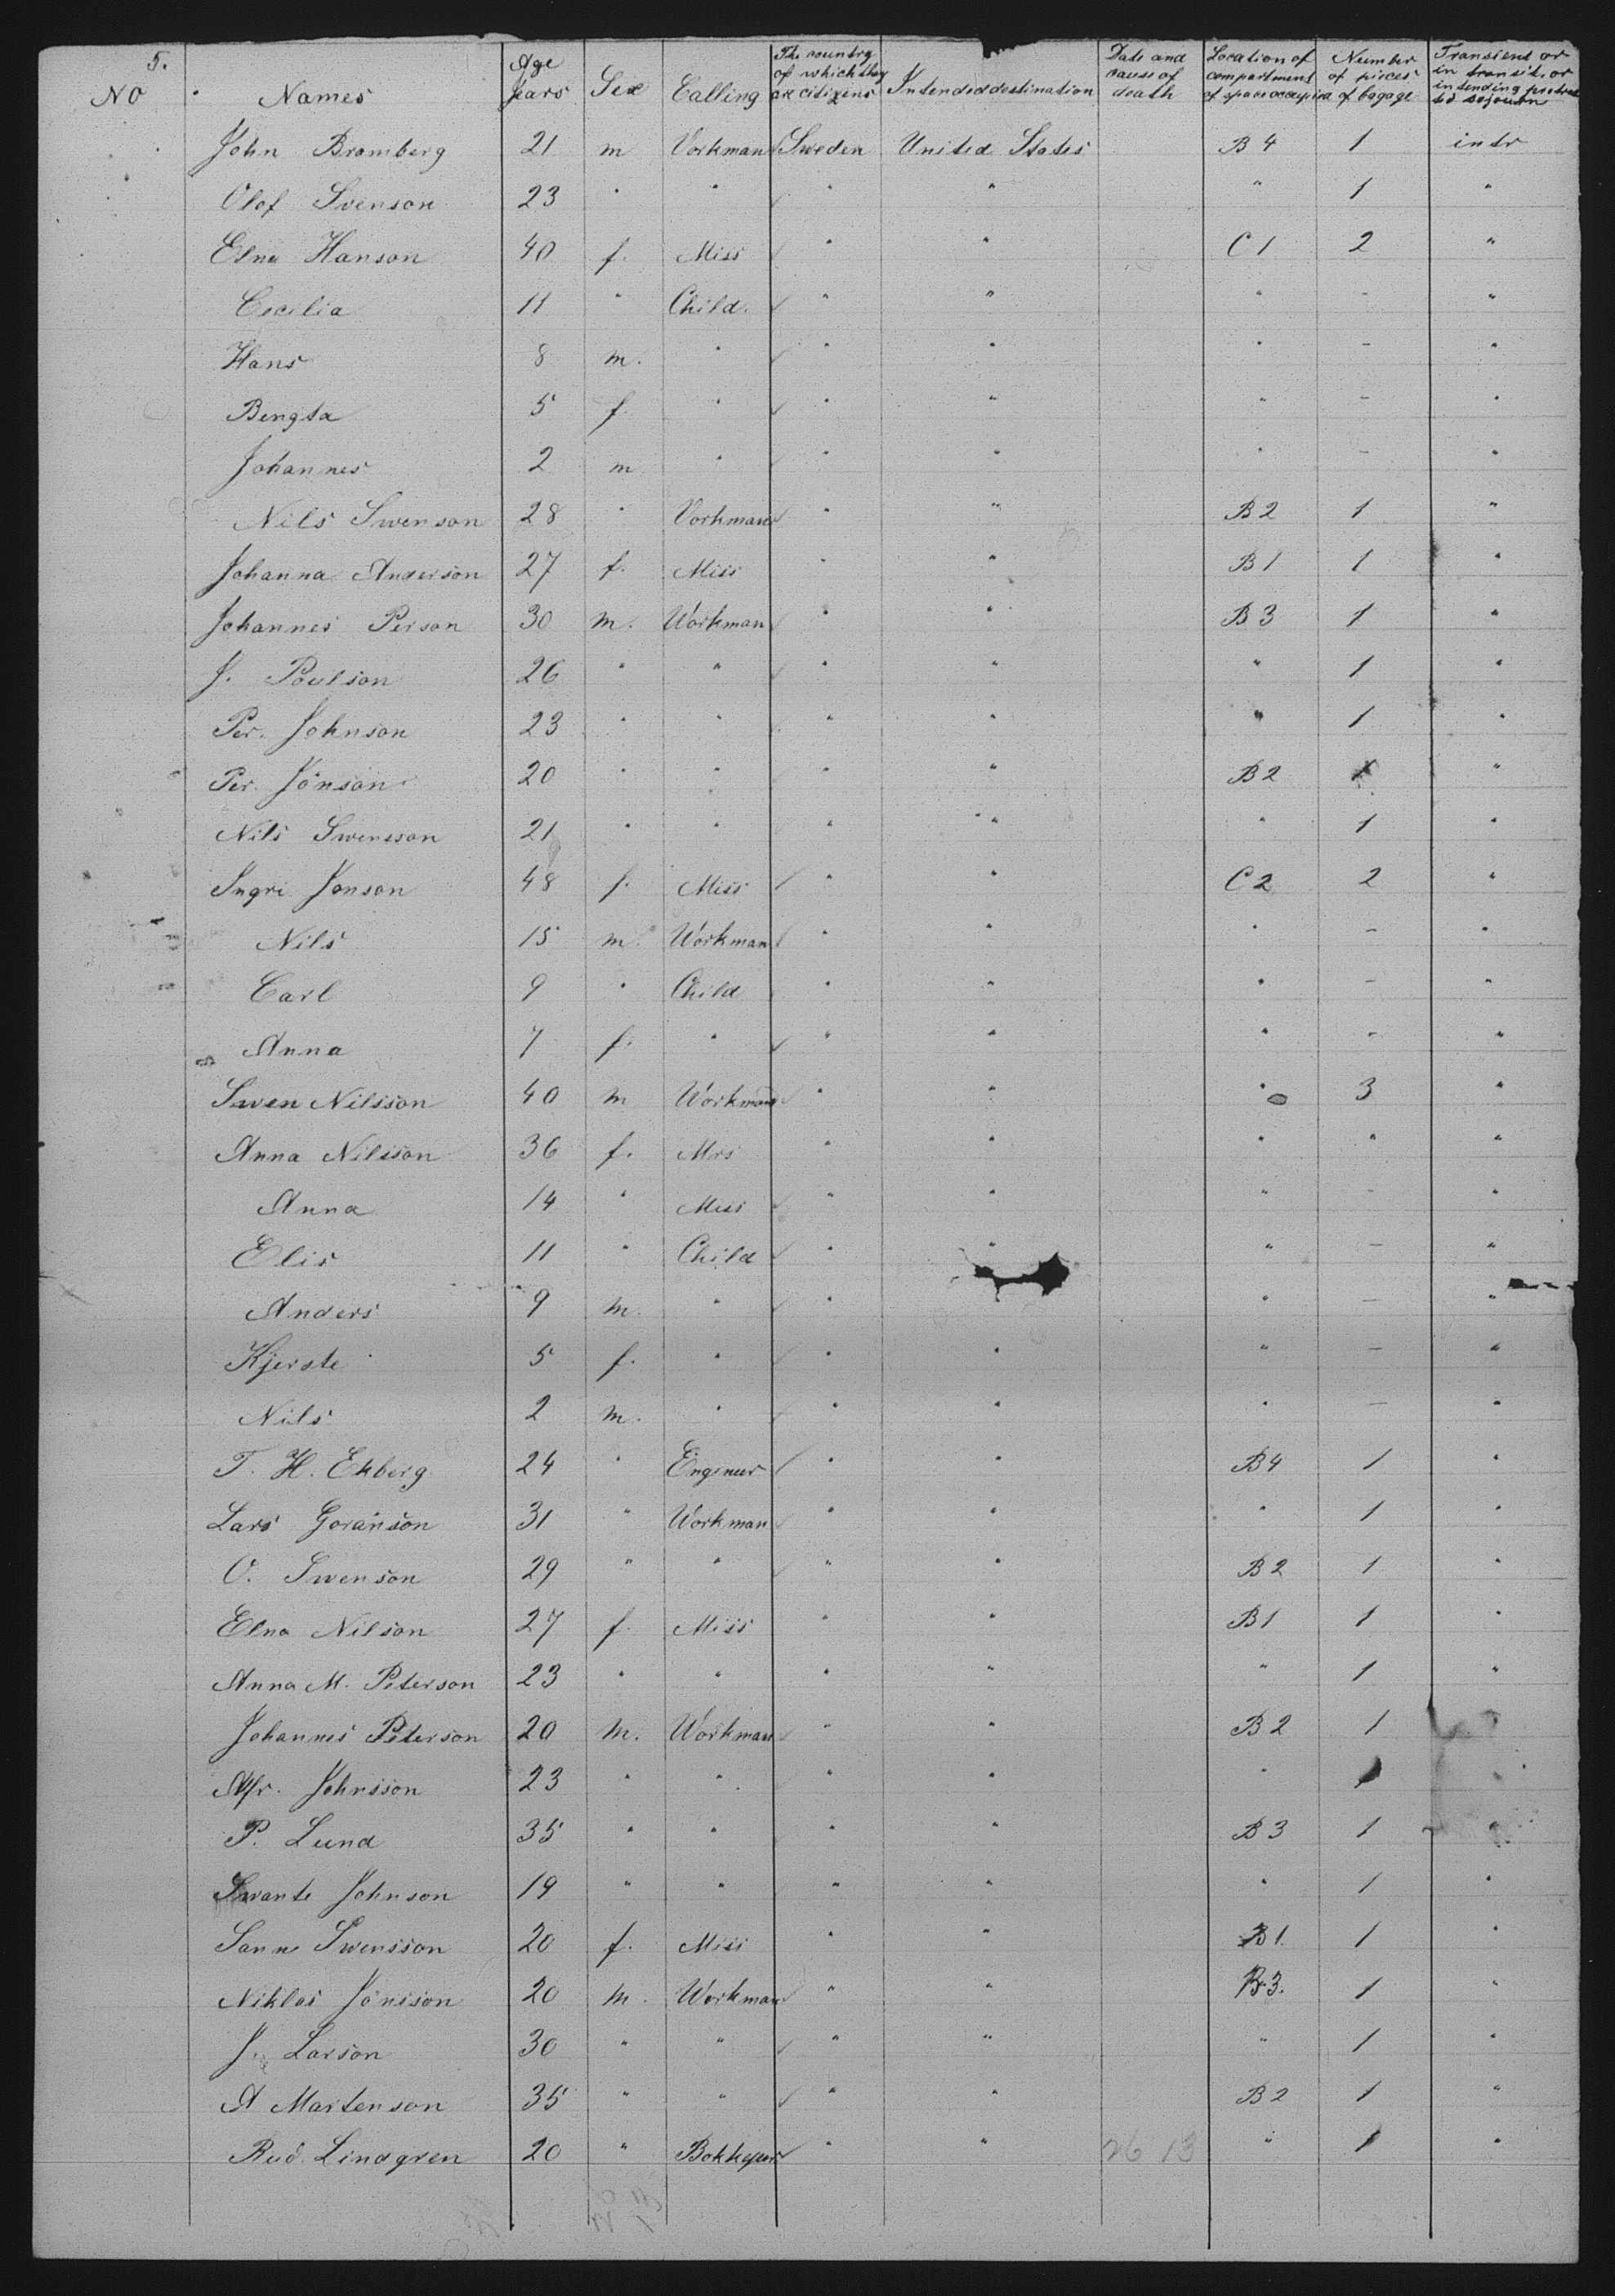 5.
NO Names Age Years Sex Calling The country of which they are citizens Intended destination Date and cause of death Location of compartment of space occupied Number of pieces of bagage Transient or in transit or intending protracted sojourn
John Bramberg 21 m Vorkman Sweden United States B 4 1 intr
Olof Svenson 23 " " " " " 1 "
Elna Hanson 40 f. Miss " " C 1 2 "
Cecilia 11 " Child. " " " - "
Hans 8 m. " " " " - "
Bengta 5 f " " " " - "
Johannes 2 m " " " " - "
Nils Swenson 28 " Vorkman " " B 2 1 "
Johanna Anderson 27 f. Miss " " B 1 1 "
Johannes Person 30 m. Workman " " B 3 1 "
J. Poulson 26 " " " " " 1 "
Per. Johnson 23 " " " " " 1 "
Per. Jönson 20 " " " " B 2 1 "
Nils Swensson 21 " " " " " 1 "
Ingri Jonson 48 f. Miss " " C 2 2 "
Nils 15 m. Workman " " " - "
Carl 9 " Child " " " - "
Anna 7 f. " " " " - "
Swen Nilsson 40 m Workman " " " 3 "
Anna Nilsson 36 f. Mrs " " " " "
Anna 14 " Miss " " " - "
Elis 11 " Child " " " - "
Anders 9 m. " " " - "
Kjerste 5 f. " " " " - "
Nils 2 m. " " " " - "
T. H. Ekberg 24 " Engineer " " B 4 1 "
Lars Goranson 31 " Workman " " " 1 "
O. Swenson 29 " " " " B 2 1 "
Elna Nilson 27 f Miss " " B 1 1 "
Anna M. Peterson 23 " " " " " 1 "
Johannes Peterson 20 m. Workman " " B 2 1
Alfr. Johnsson 23 " " " " " 1 "
P. Lund 35 " " " " B 3 1 "
Swante Johnson 19 " " " " " 1 "
Sanna Swensson 20 f. Miss " " B 1. 1 "
Niklas Jönsson 20 m. Workman " " B. 3. 1 "
J. Larson 30 " " " " " 1 "
A Martenson 35 " " " " B 2 1 "
Rud. Lindgren 20 " Bokkeper " " 26 13 " 1 "